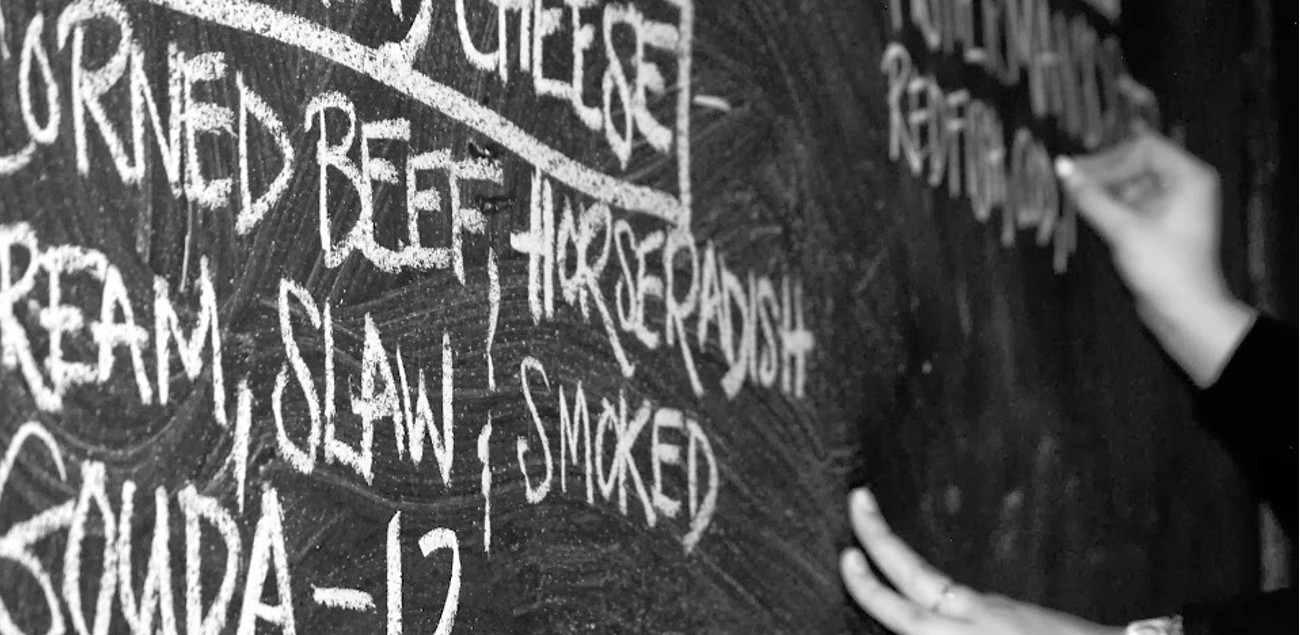 CHEESE-
CORNED BEEF, HORSERADISH
CREAM, SLAW, SMOKED
GOUDA-12
REDFISH